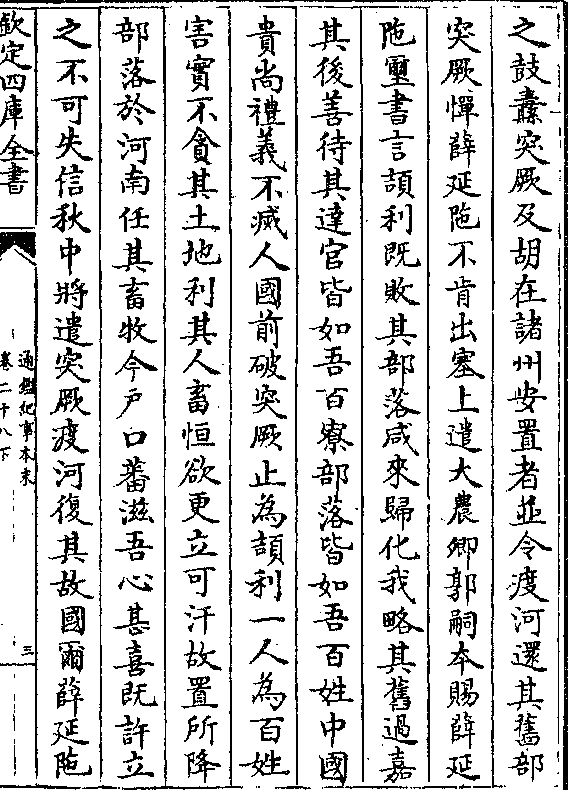 之鼓纛突厥及胡在諸州安置者並令渡河還其舊部
突厥憚薛延陁不肯出塞上遣大農卿郭嗣本賜薛延
陁璽書言頡利既敗其部落咸來歸化我略其舊過嘉
其後善待其達官皆如吾百寮部落皆如吾百姓中國
貴尚禮義不㓕人國前破突厥止為頡利一人為百姓
害實不貪其土地利其人畜恒欲更立可汗故置所降
部落於河南任其畜牧今户口蕃滋吾心甚喜既許立
之不可失信秋中將遣突厥渡河復其故國爾薛延陁
欽定四庫全書
通鑑紀事本末
卷二十八下
三